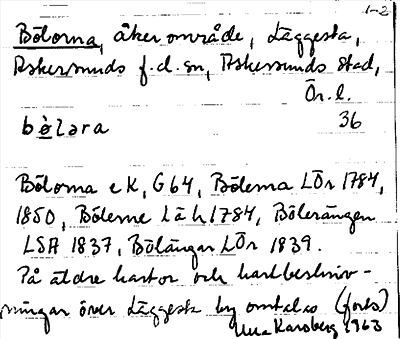 1-2
Bölorna, åkerområde, Läggesta,
Askersunds f.d. sn, Askersunds stad,
Ör. l.
bö̀lɜra 36
Bölorna eK, G64, Bölerna LÖr 1784,
1850, Bölerne Läh 1784, Bölerängen
LSA 1837, Bölängar LÖr 1839.
På äldre kartor och kartbeskriv-
ningar över Läggesta by omtalas (forts)
Karsberg 1963